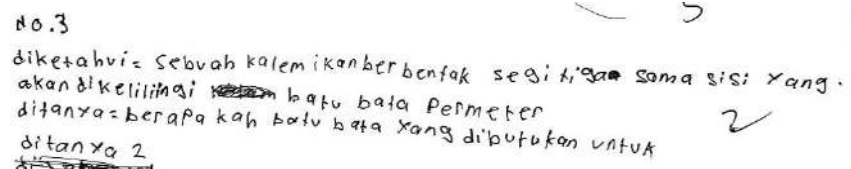 No.3
diketahui= sebuah kalem ikan berbentak segi tiga sama sisi yang.
akan dikelilingi batu bata Permeter
ditanya= berapa kah batu bata yang dibutukan untuk
2
ditanya 2